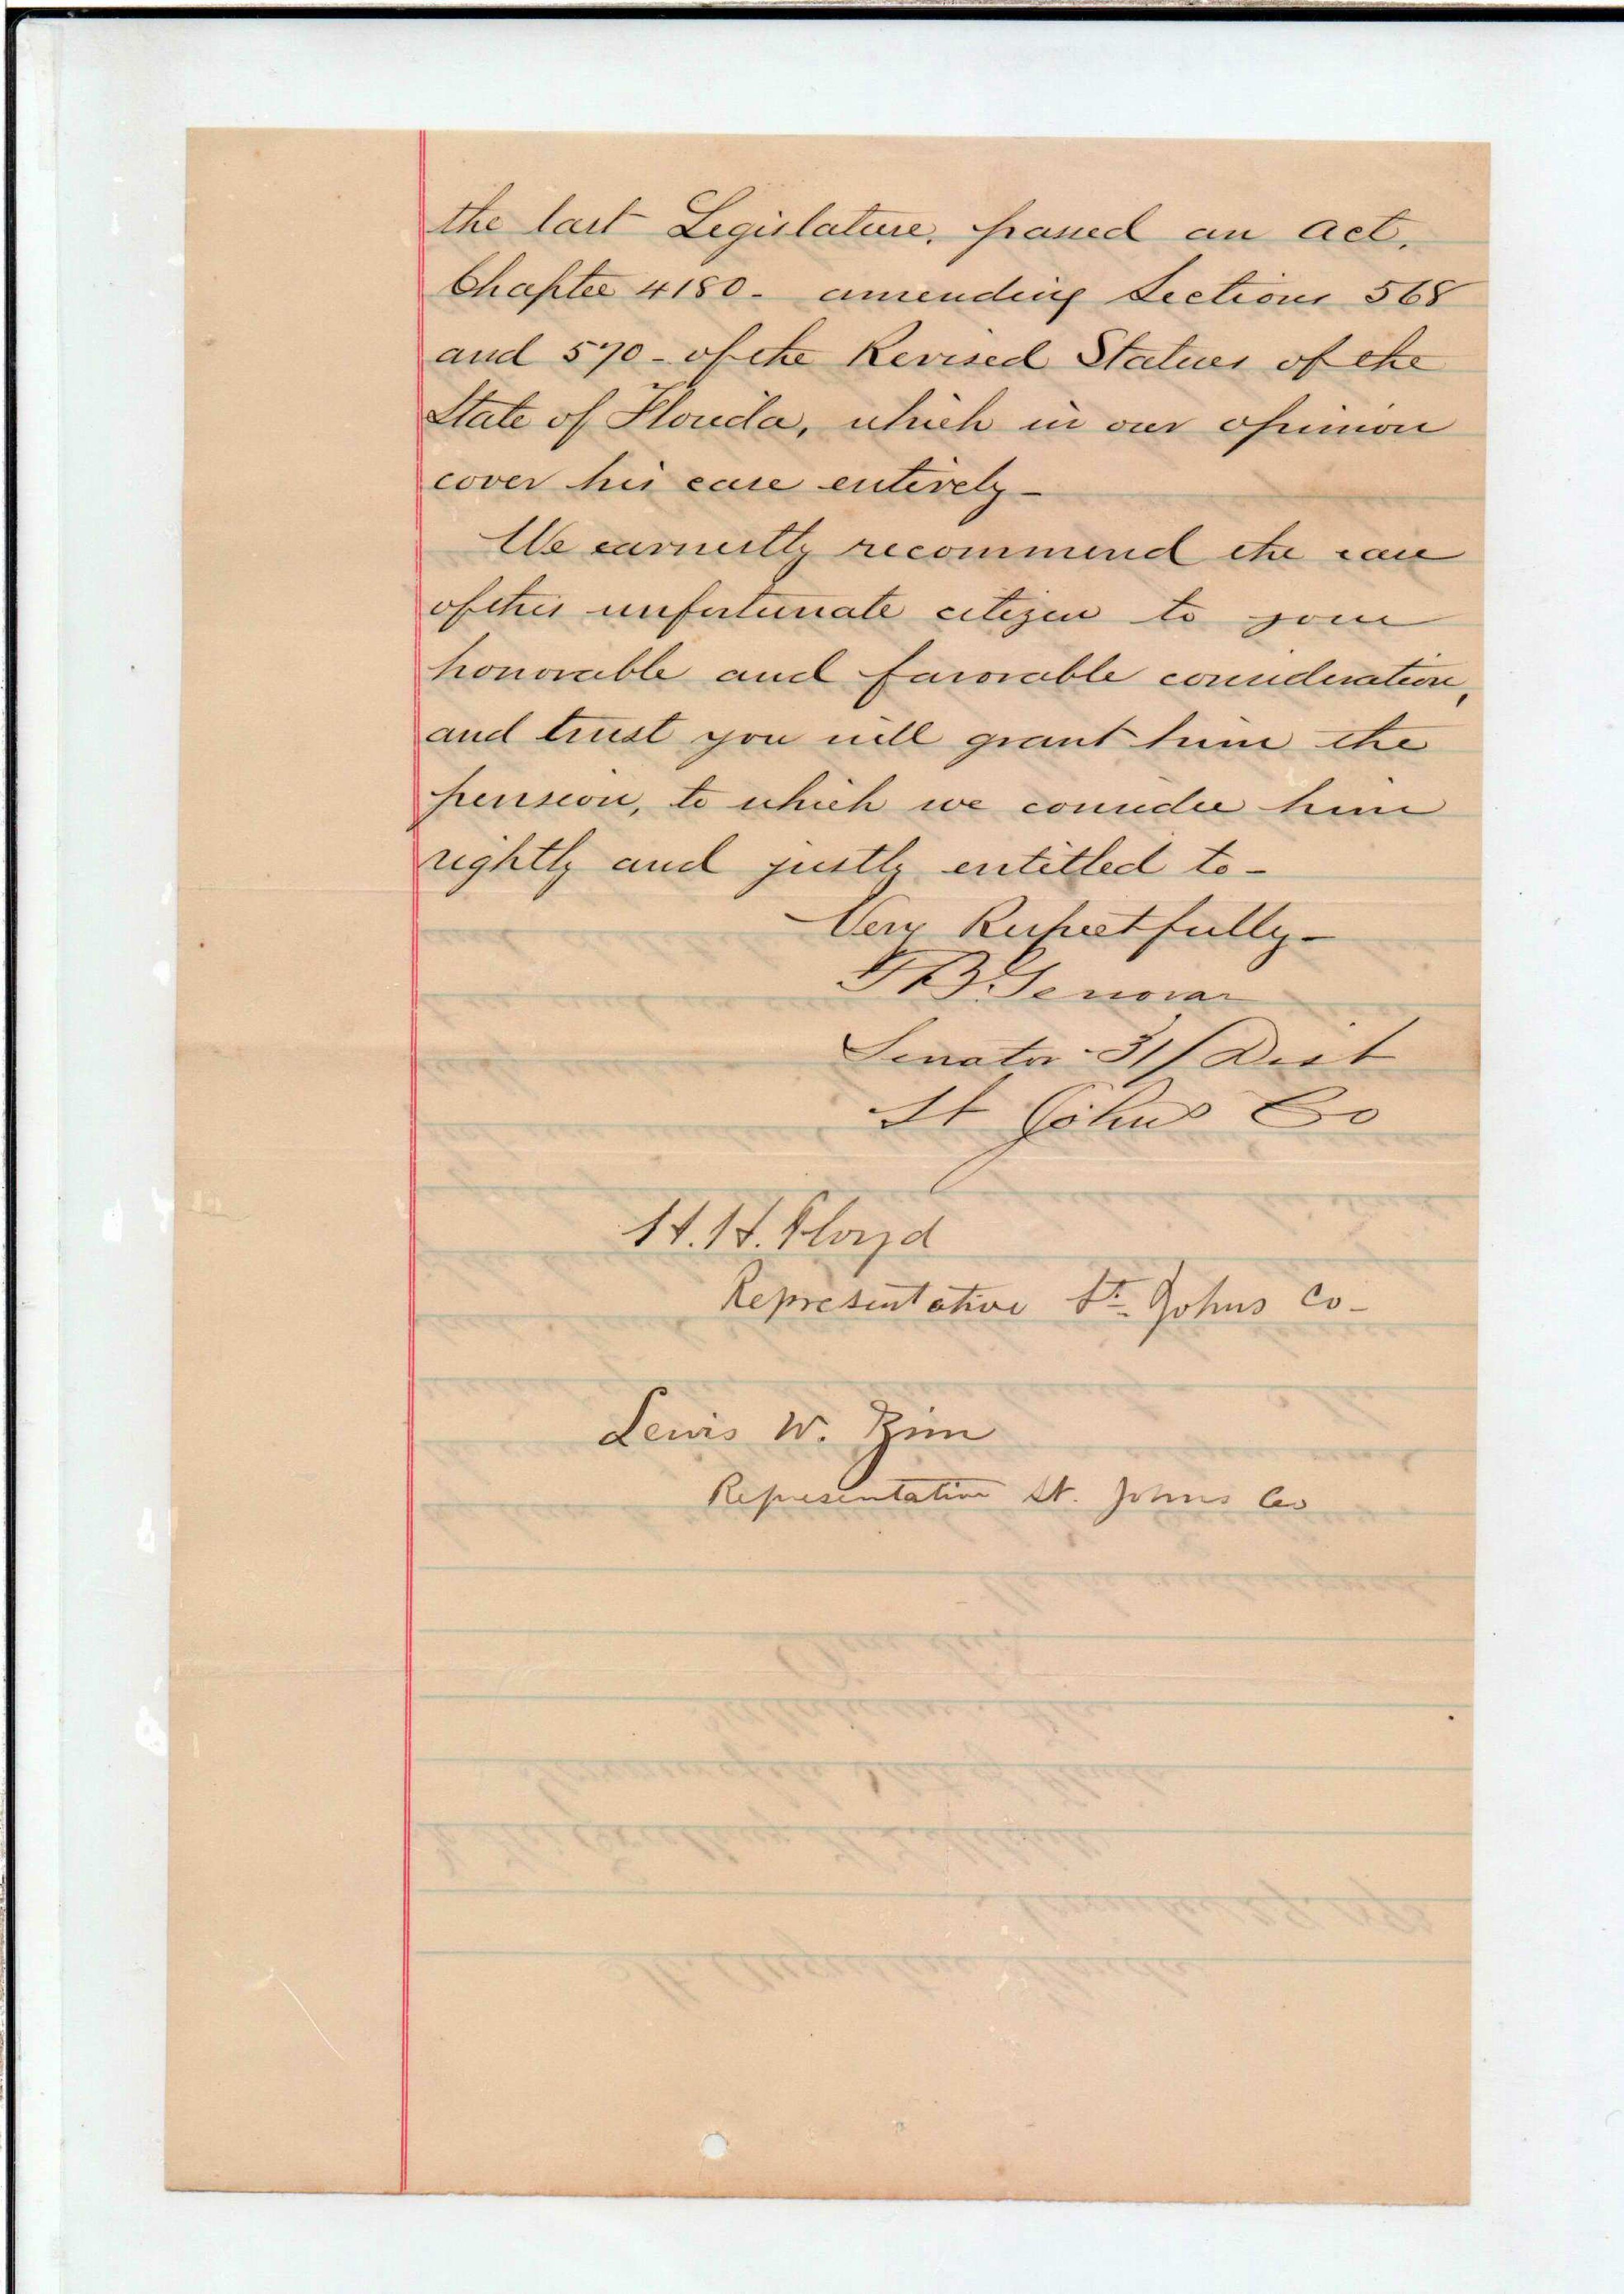 the last Legislature, passed an act.
Chapter 4180 - amending Sections 568
and 570 - of the Revised Statues of the
State of Florida, which in our opinion
cover his case entirely -
We earnestly recommend the case
of this unfortunate citizen to your
honorable and favorable consideration,
and trust you will grant him the
pension, to which we consider him
rightly and justly entitled to -
Very Respectfully -
F B. Genovar
Senator 31/ Dist
St Johns Co
H. H. Floyd
Representative St. Johns Co -
Lewis W. Zim
Representative St. Johns Co